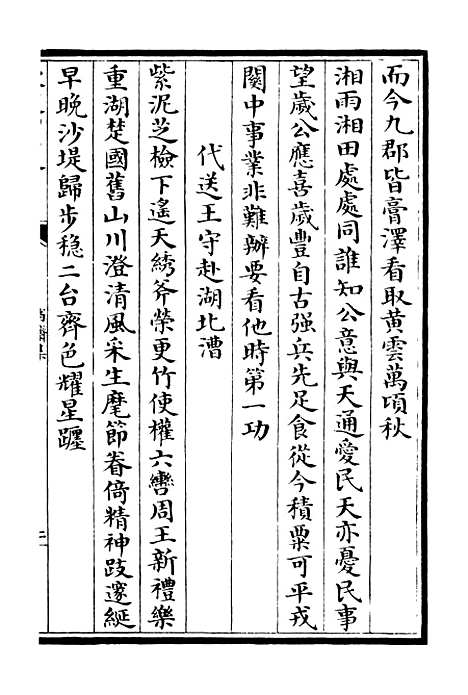 而今九郡皆膏澤看取黄雲萬頃秋
湘雨湘田處處同誰知公意與天通愛民天亦憂民事
望歲公應喜歲豐自古强兵先足食從今積粟可平戎
關中事業非難辦要看他時第一功
代送王守赴湖北漕
紫泥芝檢下遙天綉斧榮更竹使權六轡周王新禮樂
重湖楚國舊山川澄清風采生麾節眷倚精神跂邃綖
早晩沙堤歸步穏二台齊色耀星躔